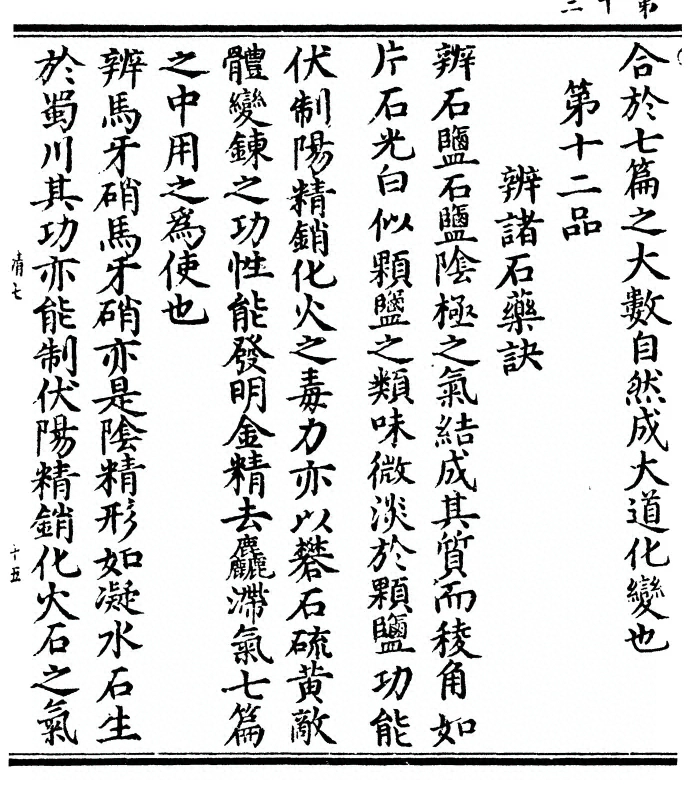 合於七篇之大數自然成大道化變也
第十二品
辨諸石藥訣
辨石鹽石鹽陰極之氣結成其質而稜角如
片石光白似顆鹽之類味微淡於顆鹽功能
伏制陽精銷化火之毒力亦以礬石硫黃敵
體變鍊之功性能發明金精去麤滯氣七篇
之中用之為使也
辨馬牙硝馬牙硝亦是陰精形如凝水石生
於蜀川其功亦能制伏陽精銷化火石之氣
清七
十五